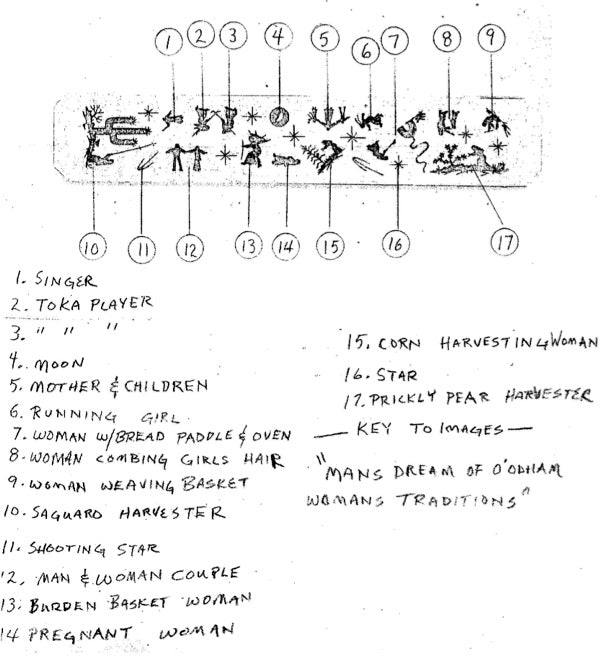 1 2 3 4 5 6 7 8 9
10 11 12 13 14 15 16 17
1. SINGER
2. TOKA PLAYER
3. " " "
4. MOON
5. MOTHER & CHILDREN
6. RUNNING GIRL
7. WOMAN W/BREAD PADDLE & OVEN
8. WOMAN COMBING GIRLS HAIR
9. WOMAN WEAVING BASKET
10. SAGUARO HARVESTER
11. SHOOTING STAR
12. MAN & WOMAN COUPLE
13. BURDEN BASKET WOMAN
14 PREGNANT WOMAN
15. CORN HARVESTING WOMAN
16. STAR
17. PRICKLY PEAR HARVESTER
— KEY TO IMAGES —
"MANS DREAM OF O'ODHAM
WOMANS TRADITIONS"